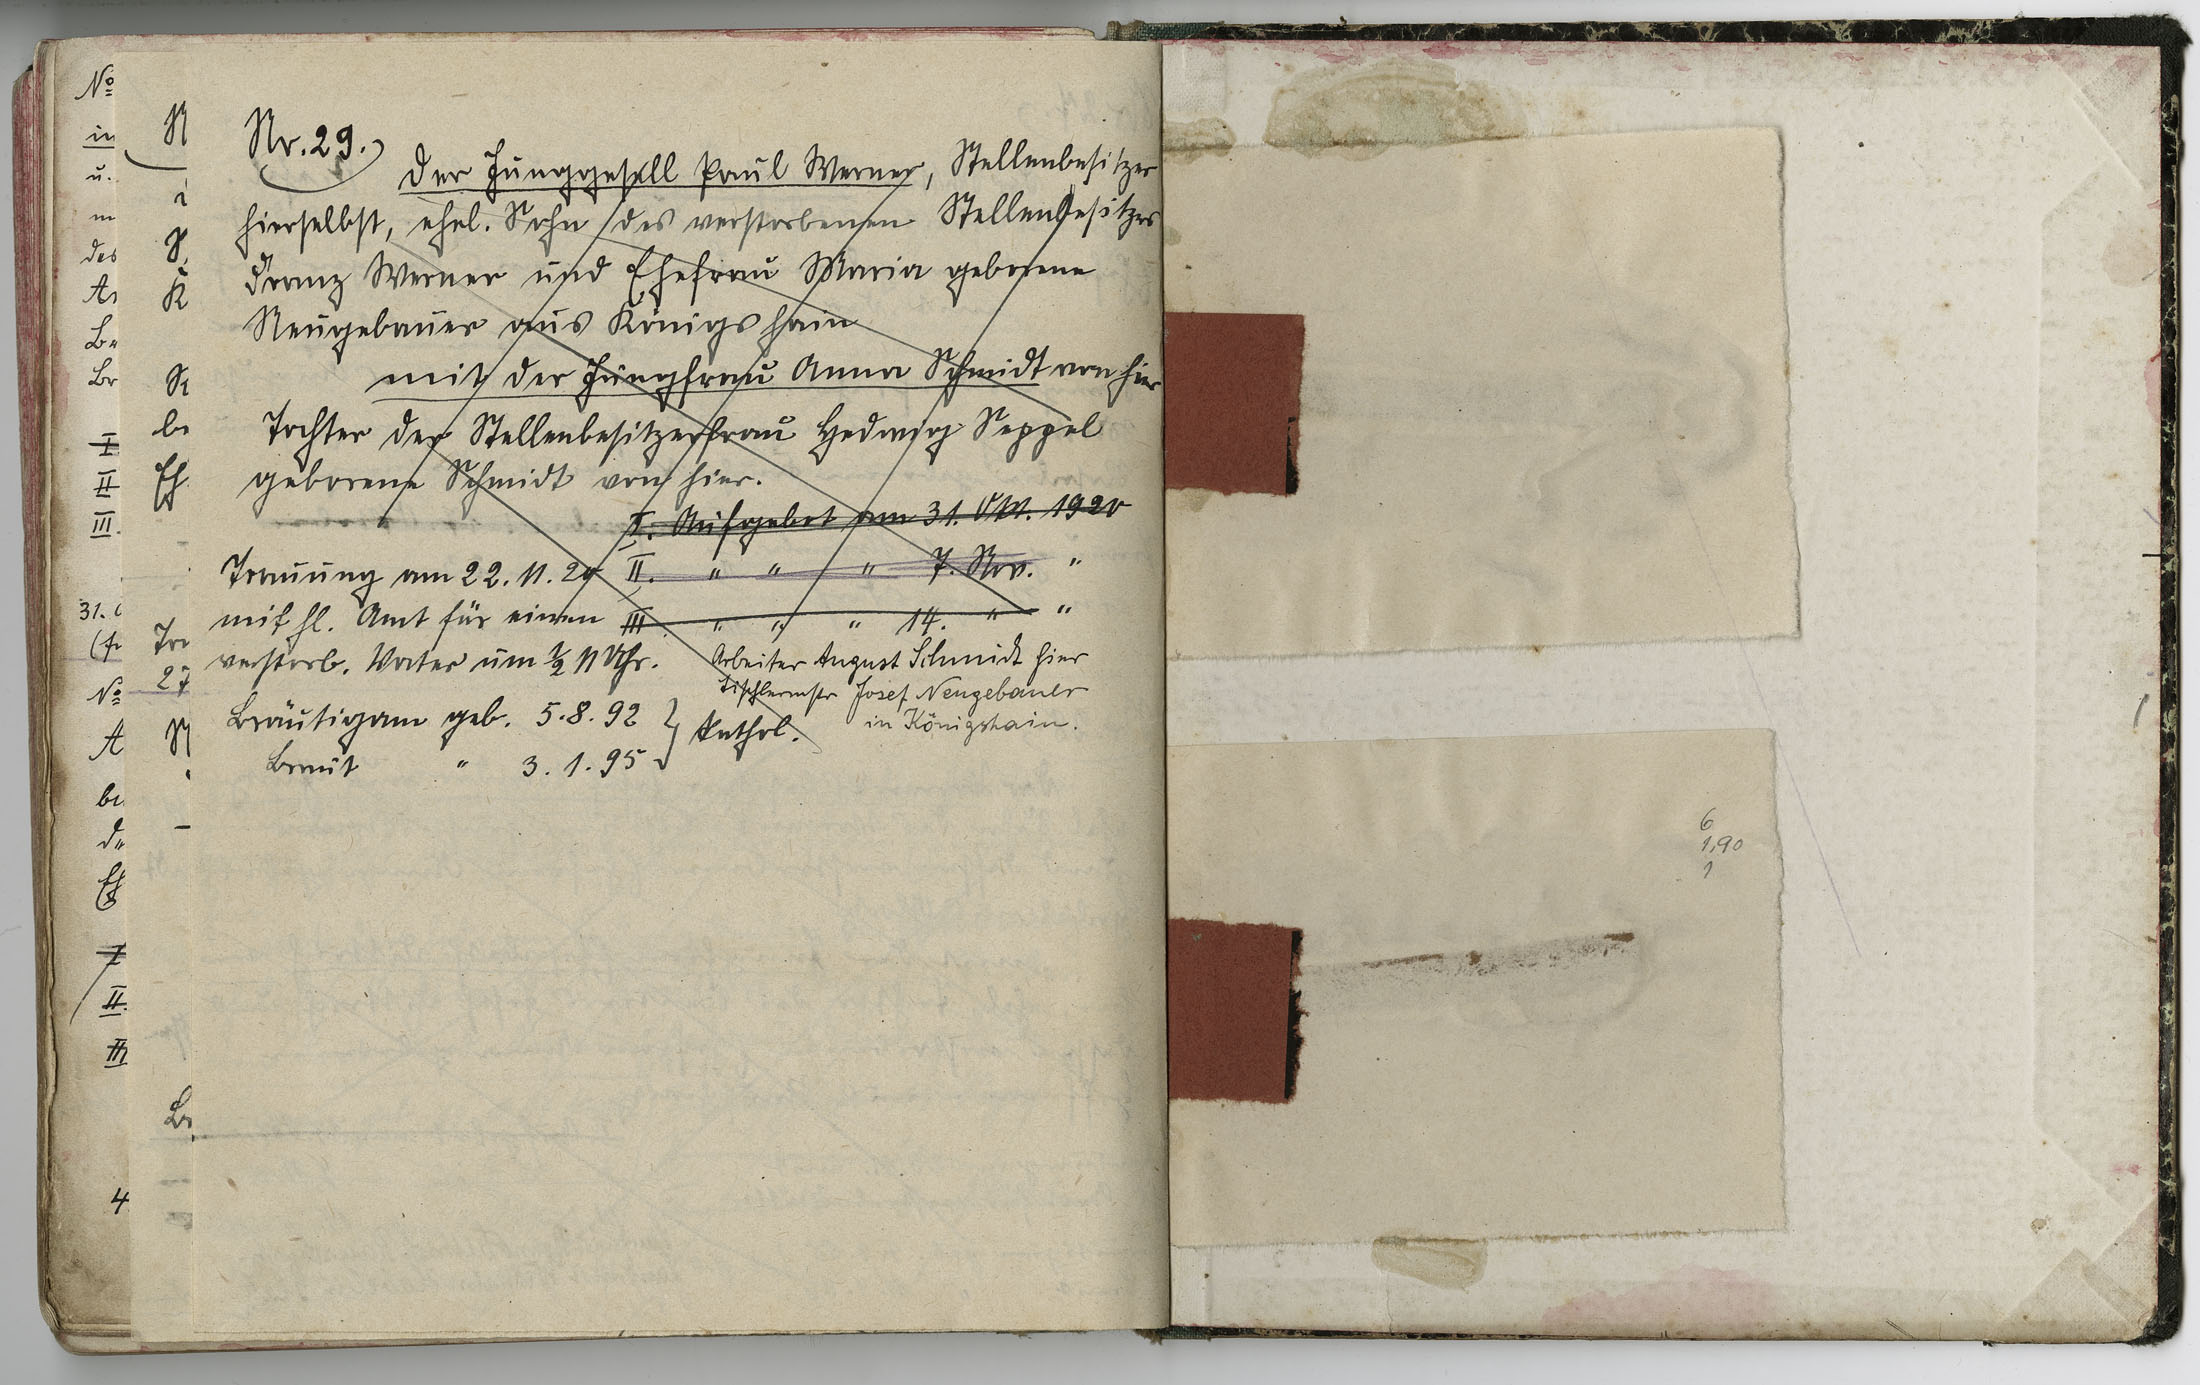 Nr. 29.
Der Junggesell Paul Werner, Stellenbesitzer
hierselbst, ehel. Sohn des verstorbenen Stellenbesitzers
Franz Werner und Ehefrau Maria geborene
Neugebauer aus Königshain
mit der Jungfrau Anna Schmidt von hier
Tochter der Stellenbesitzerfrau Hedwig Seppel
geborene Schmidt von hier.
I. Aufgebot am 31. Okt. 1920
II. " " " 7. Nov. "
III. " " " 14. " "
Trauung am 22. 11. 20
mit hl. Amt für einen
verstorb. Vater um ½ 11 Uhr.
Arbeiter August Schmidt hier
Tischlermstr Josef Neugebauer
in Königshain.
Bräutigam geb. 5. 8. 92 } kathol.
Braut " 3. 1. 95
6
1,90
1
No
in
u.
m
des
I
II
III.
No
II.
III
4
27